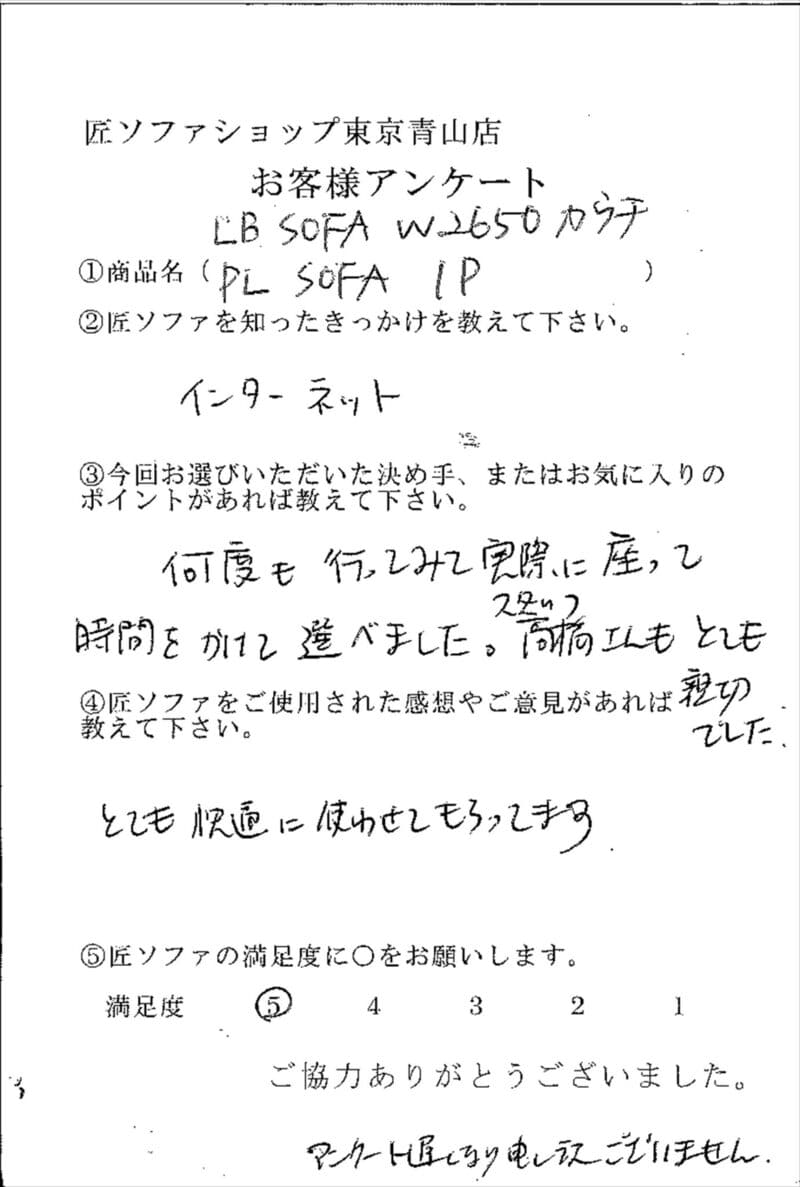 匠ソファショップ東京青山店
お客様アンケート
LB SOFA W2650 カウチ
①商品名（PL SOFA 1P）
②匠ソファを知ったきっかけを教えて下さい。
インターネット
③今回お選びいただいた決め手、またはお気に入りの
ポイントがあれば教えて下さい。
何度も行ってみて実際に座って
時間をかけて選べました。スタッフ高橋さんもとても
親切
でした.
④匠ソファをご使用された感想やご意見があれば
教えて下さい。
とても快適に使わせてもらってます
⑤匠ソファの満足度に〇をお願いします。
満足度 5 4 3 2 1
ご協力ありがとうございました。
アンケート遅くなり申し訳ございません.